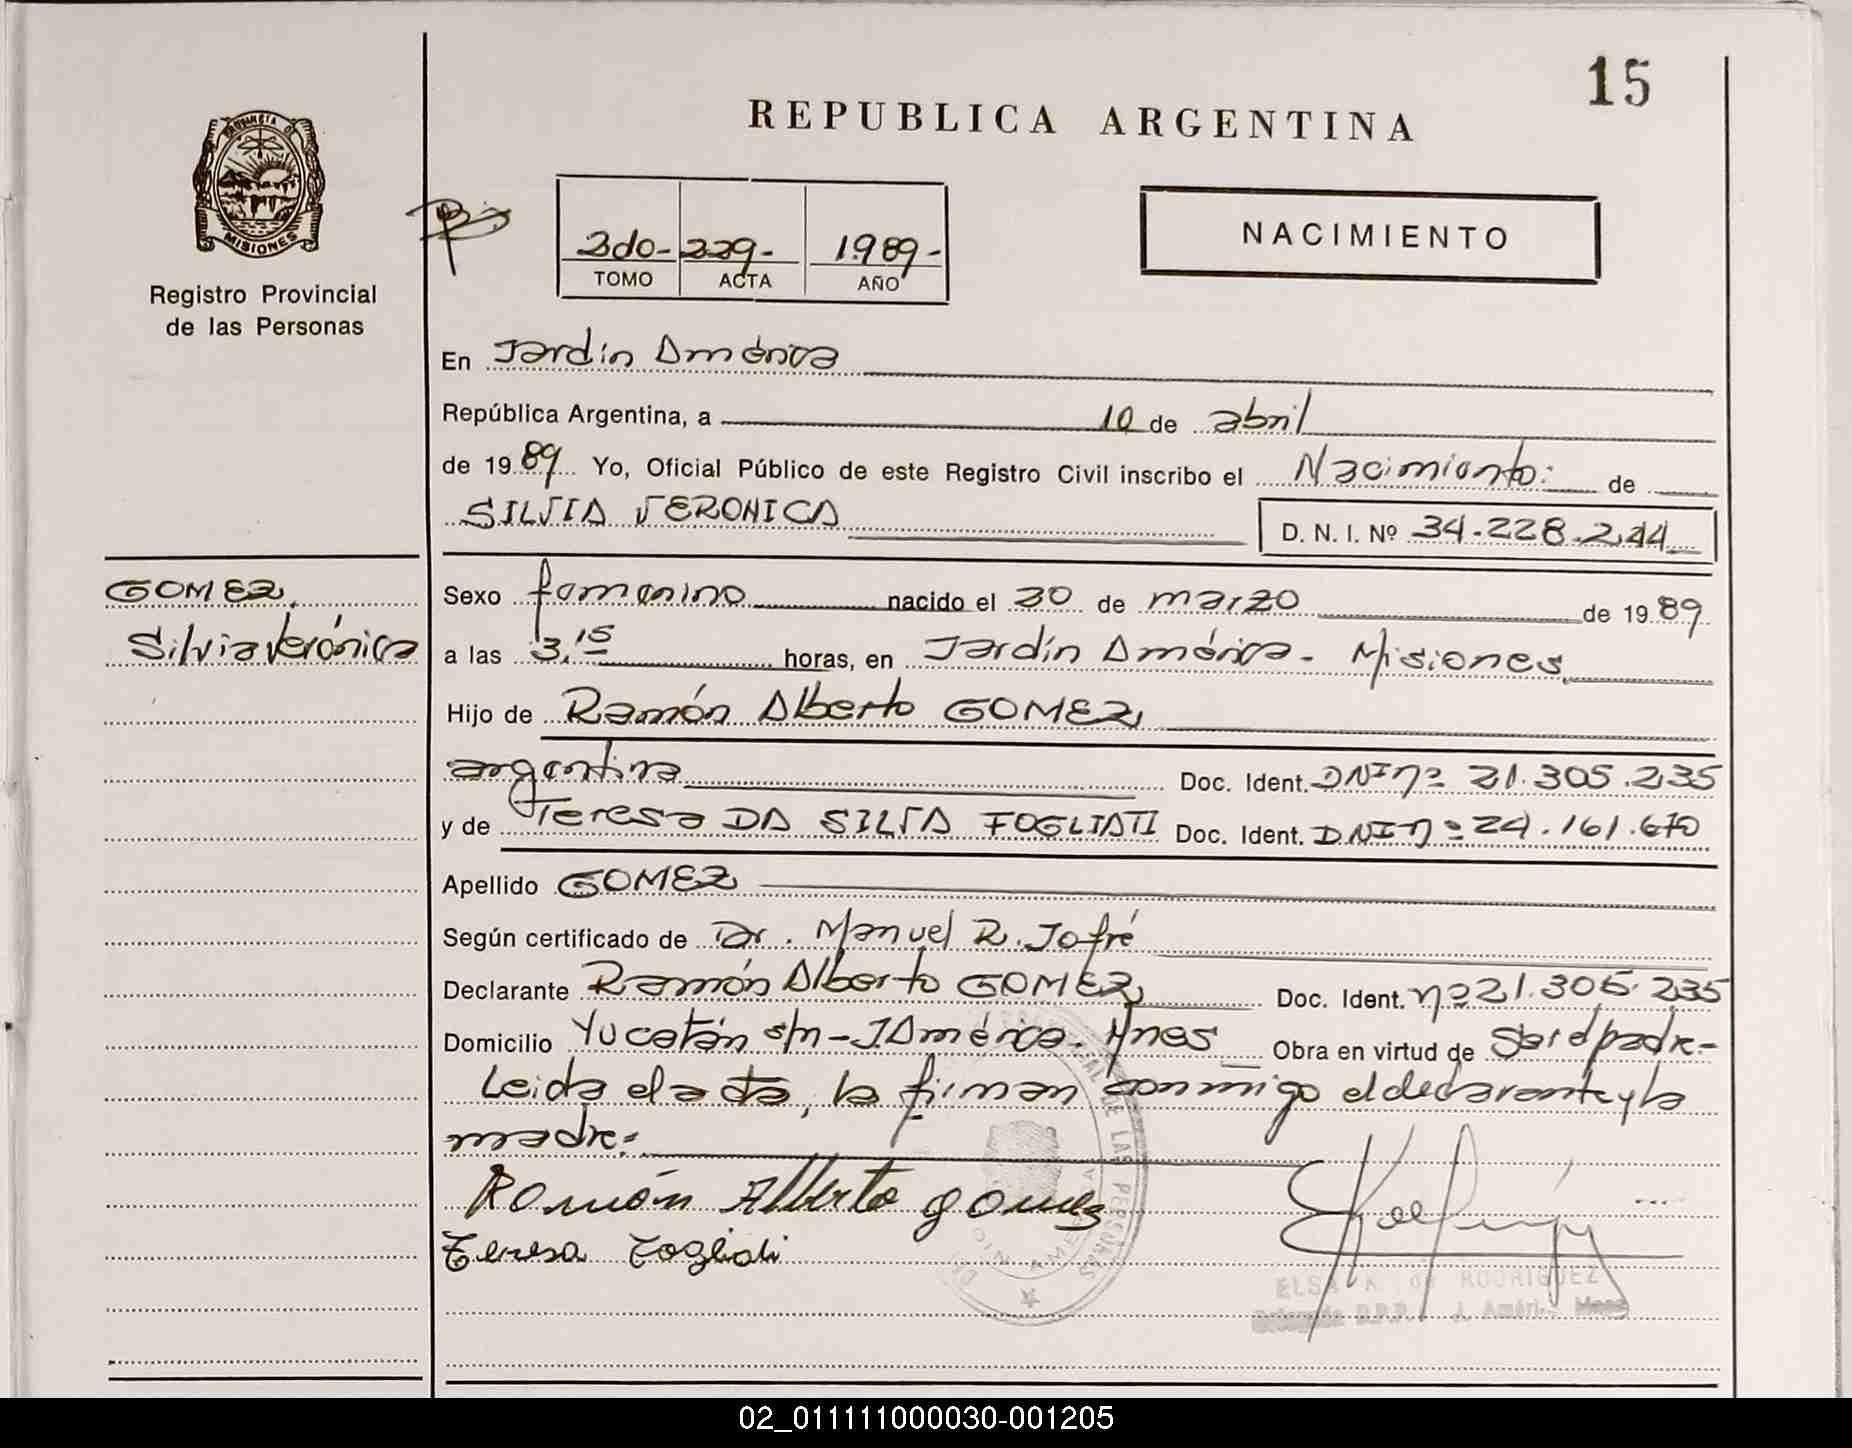 15
REPUBLICA ARGENTINA
PROVINCIA DE
MISIONES
Registro Provincial
de las Personas
2do- 229- 1989-
TOMO ACTA AÑO
NACIMIENTO
En Jardín América
República Argentina, a 10 de abril
de 1989 Yo, Oficial Público de este Registro Civil inscribo el Nacimiento: de
SILVIA VERONICA D. N. I. Nº 34.228.244
GOMEZ,
Silvia Verónica
Sexo femenino nacido el 30 de marzo de 1989
a las 3,15 horas, en Jardín América. Misiones
Hijo de Ramón Alberto GOMEZ,
argentina Doc. Ident. DNI nº 21.305.235
y de Teresa DA SILVA FOGLIATI Doc. Ident. DNI nº 24.161.670
Apellido GOMEZ
Según certificado de Dr. Manuel R. Jofré
Declarante Ramón Alberto GOMEZ, Doc. Ident. nº 21.305.235
Domicilio Yucatán s/n - J América. Mnes Obra en virtud de Ser el padre.-
Leida el acta, la firman conmigo el declarante y la
madre.-
Ramón Alberto gomez
Teresa Fogliati
ELSA K. de RODRIGUEZ
Delegada R.P.P. J. Améri. Mnes
02_011111000030-001205